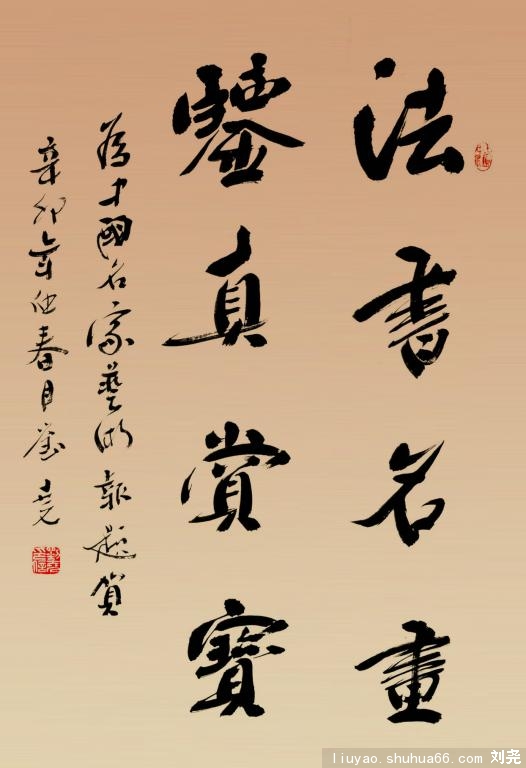 法書名畫
鑒真賞寶
為中國名家藝術報題賀
辛卯年仲春月劉堯
liuyao.shuhua66.com 刘尧